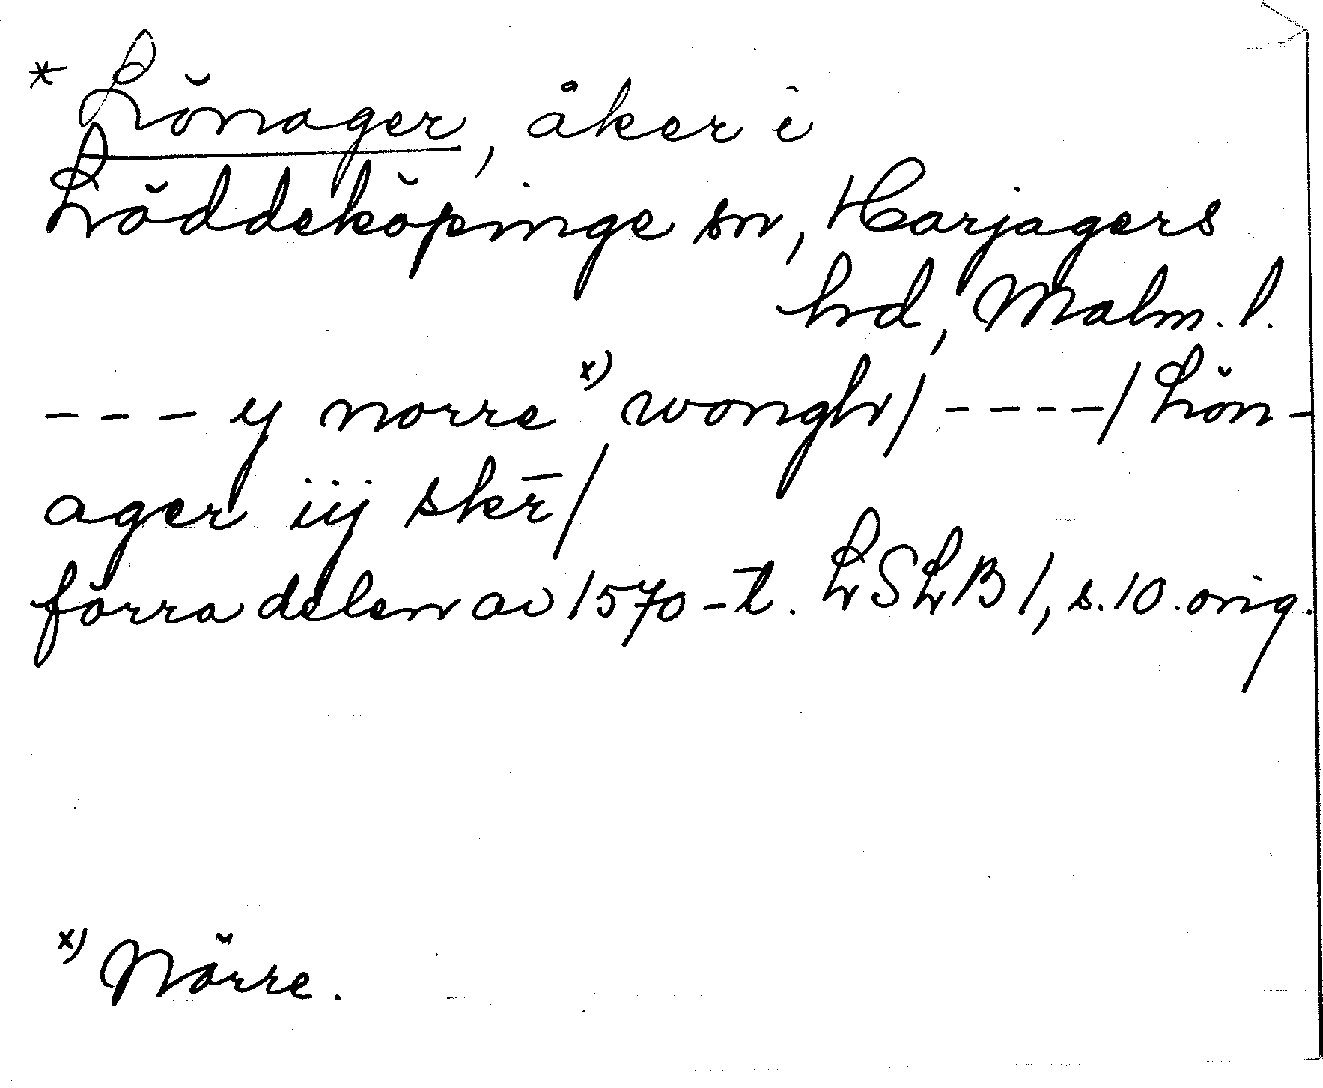 * Lönager, åker i
Löddeköpinge sn, Harjagers
hd, Malm. l.
--- y norre x) wongh/ ----/ Lön-
ager iij skr̄/
förra delen av 1570-t. LSLB 1, s. 10. orig.
x) Nörre.